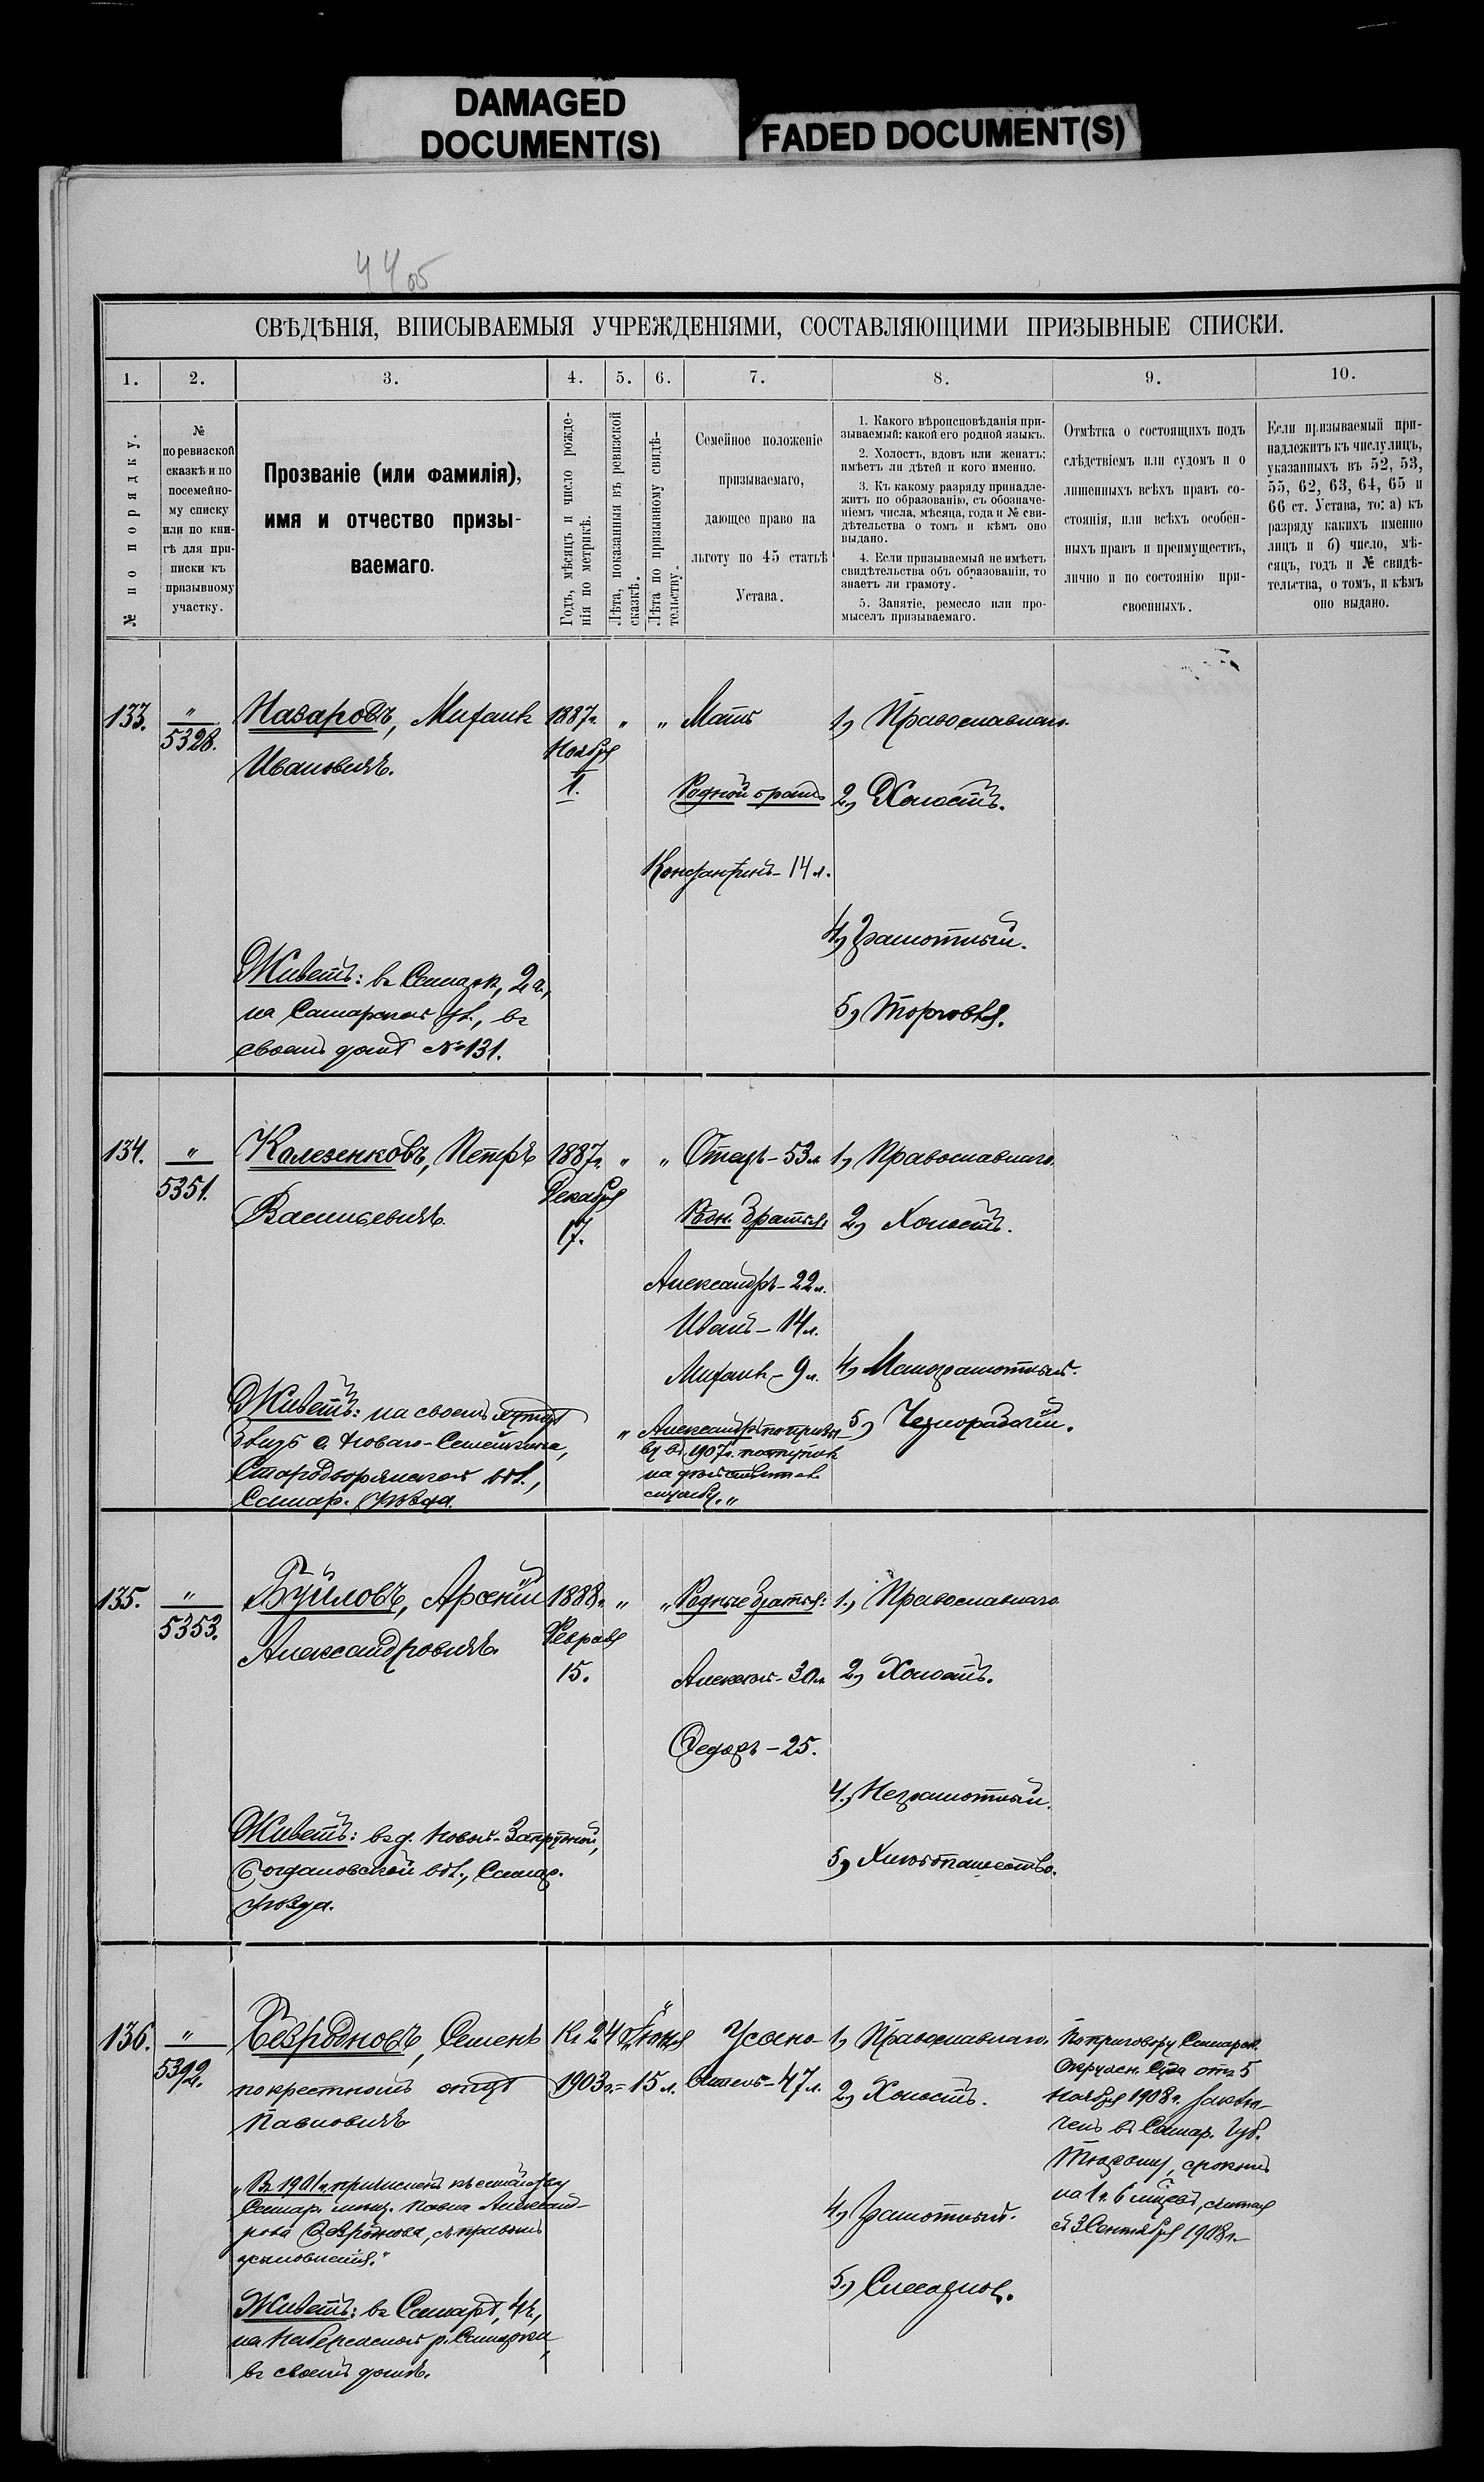 DAMAGED
DOCUMENT(S)
FADED DOCUMENT(S)
4405
СВѢДѢНІЯ, ВПИСЫВАЕМЫЯ УЧРЕЖДЕНІЯМИ, СОСТАВЛЯЮЩИМИ ПРИЗЫВНЫЕ СПИСКИ.
1. 2. 3. 4. 5. 6. 7. 8. 9. 10.
№ по порядку.
№
по ревизской
сказкѣ и по
посемейно-
му списку
или по кни-
гѣ для при-
писки къ
призывному
участку.
Прозваніе (или фамилія),
имя и отчество призы-
ваемаго.
Годъ, мѣсяцъ и число рожде-
нія по метрикѣ.
Лѣта, показанныя въ ревизской
сказкѣ.
Лѣта по призывному свидѣ-
тельству.
Семейное положеніе
призываемаго,
дающее право на
льготу по 45 статьѣ
Устава.
1. Какого вѣроисповѣданія при-
зываемый: какой его родной языкъ.
2. Холостъ, вдовъ или женатъ:
имѣетъ ли дѣтей и кого именно.
3. Къ какому разряду принадле-
житъ по образованію, съ обозначе-
ніемъ числа, мѣсяца, года и № сви-
дѣтельства о томъ и кѣмъ оно
выдано.
4. Если призываемый не имѣетъ
свидѣтельства объ образованіи, то
знаетъ ли грамоту.
5. Занятіе, ремесло или про-
мыселъ призываемаго.
Отмѣтка о состоящихъ подъ
слѣдствіемъ или судомъ и о
лишенныхъ всѣхъ правъ со-
стоянія, или всѣхъ особен-
ныхъ правъ и преимуществъ,
лично и по состоянію при-
своенныхъ.
Если призываемый при-
надлежитъ къ числу лицъ,
указанныхъ въ 52, 53,
55, 62, 63, 64, 65 и
66 ст. Устава, то: а) къ
разряду какихъ именно
лицъ и б) число, мѣ-
сяцъ, годъ и № свидѣ-
тельства, о томъ, и кѣмъ
оно выдано.
133.
"
5328.
Назаровъ, Михаилъ
Ивановичъ.
Живетъ: въ Самарѣ, 2 ч.,
на Самарской ул., въ
своемъ домѣ № 131.
1887 г.
Ноября
1.
" "
Мать
Родной братъ
Константинъ - 14 л.
1) Православнаго.
2) Холостъ.
4) Грамотный.
5) Торговля.
134.
"
5351.
Калезенковъ, Петръ
Васильевичъ.
Живетъ: на своемъ хуторѣ
близъ с. Новаго-Семейкина,
Стародворянской вол.,
Самар. уѣзда.
1887 г.
Декабря
17.
" "
Отецъ - 53 л.
Родн. братья:
Александръ - 22 л.
Иванъ - 14 л.
Михаилъ - 9 л.
"Александръ по призы-
ву въ 1907 г. поступилъ
на дѣйствител.
службу."
1) Православнаго.
2) Холостъ.
4) Малограмотный.
5) Чернорабочій.
135.
"
5353.
Буйловъ, Арсеній
Александровичъ.
Живетъ: въ д. Новой-Запрудной,
Богдановской вол., Самар.
уѣзда.
1888 г.
Февраля
15.
" "
Родные братья:
Алексѣй - 30 л.
Федоръ - 25.
1.) Православнаго
2) Холостъ.
4.) Неграмотный.
5) Хлѣбопашество.
136.
"
5392.
Безродновъ, Семенъ
по крестному отцу
Павловичъ
"Въ 1901 г. причисленъ къ семейству
Самар. мѣщ. Павла Александ-
рова Безроднова, съ правомъ
усыновленія."
Живетъ: въ Самарѣ, 4 ч.,
на Набережной р. Самарки,
въ своемъ домѣ.
Къ 24 Іюня
1903 г. = 15 л.
"
Усыно-
витель - 47 л.
1) Православнаго.
2) Холостъ.
4) Грамотный.
5) Слесарное.
По приговору Самарск.
Окружн. Суда отъ 5
Ноября 1908 г. заклю-
ченъ въ Самар. Губ.
Тюрьму, срокомъ
на 1 г. 6 мѣсяц., считая
съ 3 Сентября 1908 г.